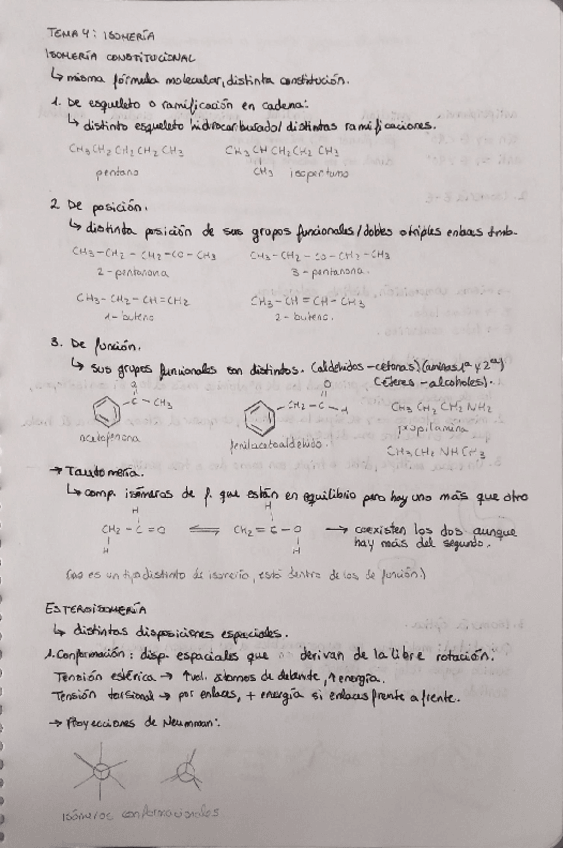 TEMA 4: ISOMERÍA
ISOMERÍA CONSTITUCIONAL
↳ misma fórmula molecular, distinta constitución.
1. De esqueleto o ramificación en cadena:
↳ distinto esqueleto hidrocarburado/distintas ramificaciones.
CH3CH2CH2CH2CH3 CH3CHCH2CH2CH3
CH3
pentano isopentano
2 De posición.
↳ distinta posición de sus grupos funcionales/dobles o triples enlaces tmb.
CH3-CH2-CH2-CO-CH3 CH3-CH2-CO-CH2-CH3
2-pentanona 3-pentanona.
CH3-CH2-CH=CH2 CH3-CH=CH-CH3
1-buteno 2-buteno.
3. De función.
↳ sus grupos funcionales son distintos. (aldehidos-cetonas)(aminas 1ª y 2ª)
(éteres-alcoholes).
O O
C-CH3 CH2-C-H CH3CH2CH2NH2
acetofenona fenilacetoaldehido. propilamina
CH3CH2NHCH3
→ Tautomería.
↳ comp. isómeros de f. que están en equilibrio pero hay uno más que otro
H H
CH2-C=O ⇌ CH2=C-O → coexisten los dos aunque
H H hay más del segundo.
(no es un tipo distinto de isomería, está dentro de los de función.)
ESTEROISOMERÍA
↳ distintas disposiciones espaciales.
1. Conformación: disp. espaciales que derivan de la libre rotación.
Tensión estérica → ↑vol. átomos de delante, ↑energía.
Tensión torsional → por enlaces, + energía si enlaces frente a frente.
→ Proyecciones de Neumman:
isómeros conformacionales